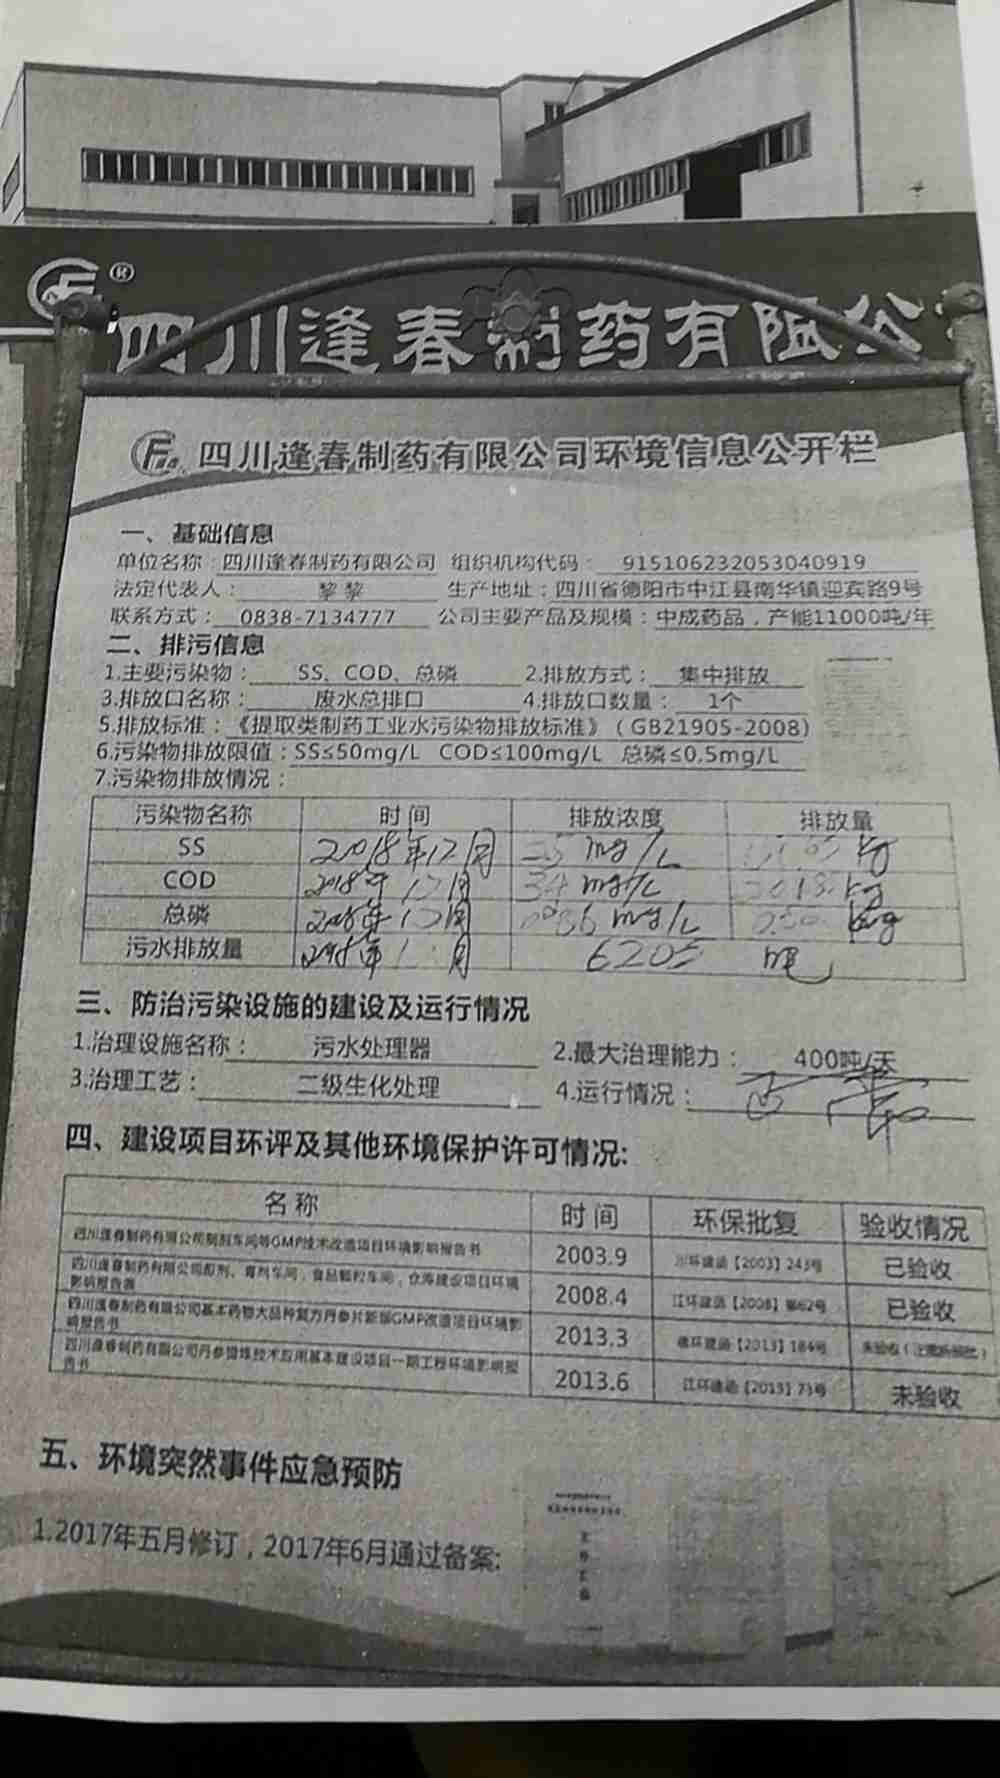 四川逢春制药有限公
四川逢春制药有限公司环境信息公开栏
一、基础信息
单位名称：四川逢春制药有限公司 组织机构代码： 915106232053040919
法定代表人： 黎黎 生产地址：四川省德阳市中江县南华镇迎宾路9号
联系方式： 0838-7134777 公司主要产品及规模：中成药品，产能11000吨/年
二、排污信息
1.主要污染物： SS、COD、总磷 2.排放方式： 集中排放
3.排放口名称： 废水总排口 4.排放口数量： 1个
5.排放标准：《提取类制药工业水污染物排放标准》（GB21905-2008）
6.污染物排放限值：SS≤50mg/L COD≤100mg/L 总磷≤0.5mg/L
7.污染物排放情况：
污染物名称 时间 排放浓度 排放量
SS 2018年12月 mg/L kg
COD 2018年12月 34mg/L kg
总磷 2018年12月 mg/L kg
污水排放量 2018年 月 6205 吨
三、防治污染设施的建设及运行情况
1.治理设施名称： 污水处理器 2.最大治理能力： 400吨/天
3.治理工艺： 二级生化处理 4.运行情况： 正常
四、建设项目环评及其他环境保护许可情况:
名称 时间 环保批复 验收情况
四川逢春制药有限公司制剂车间等GMP技术改造项目环境影响报告书 2003.9 川环建函【2003】243号 已验收
四川逢春制药有限公司 车间，食品颗粒车间，仓库建设项目环境
影响报告表 2008.4 江环建函【2008】第62号 已验收
四川逢春制药有限公司基本药物大品种复方丹参片新版GMP改造项目环境影
响报告书 2013.3 【2013】184号 未验收
四川逢春制药有限公司丹参 技术应用基本建设项目一期工程环境影响报
告书 2013.6 江环建函【2013】73号 未验收
五、环境突然事件应急预防
1.2017年五月修订，2017年6月通过备案: